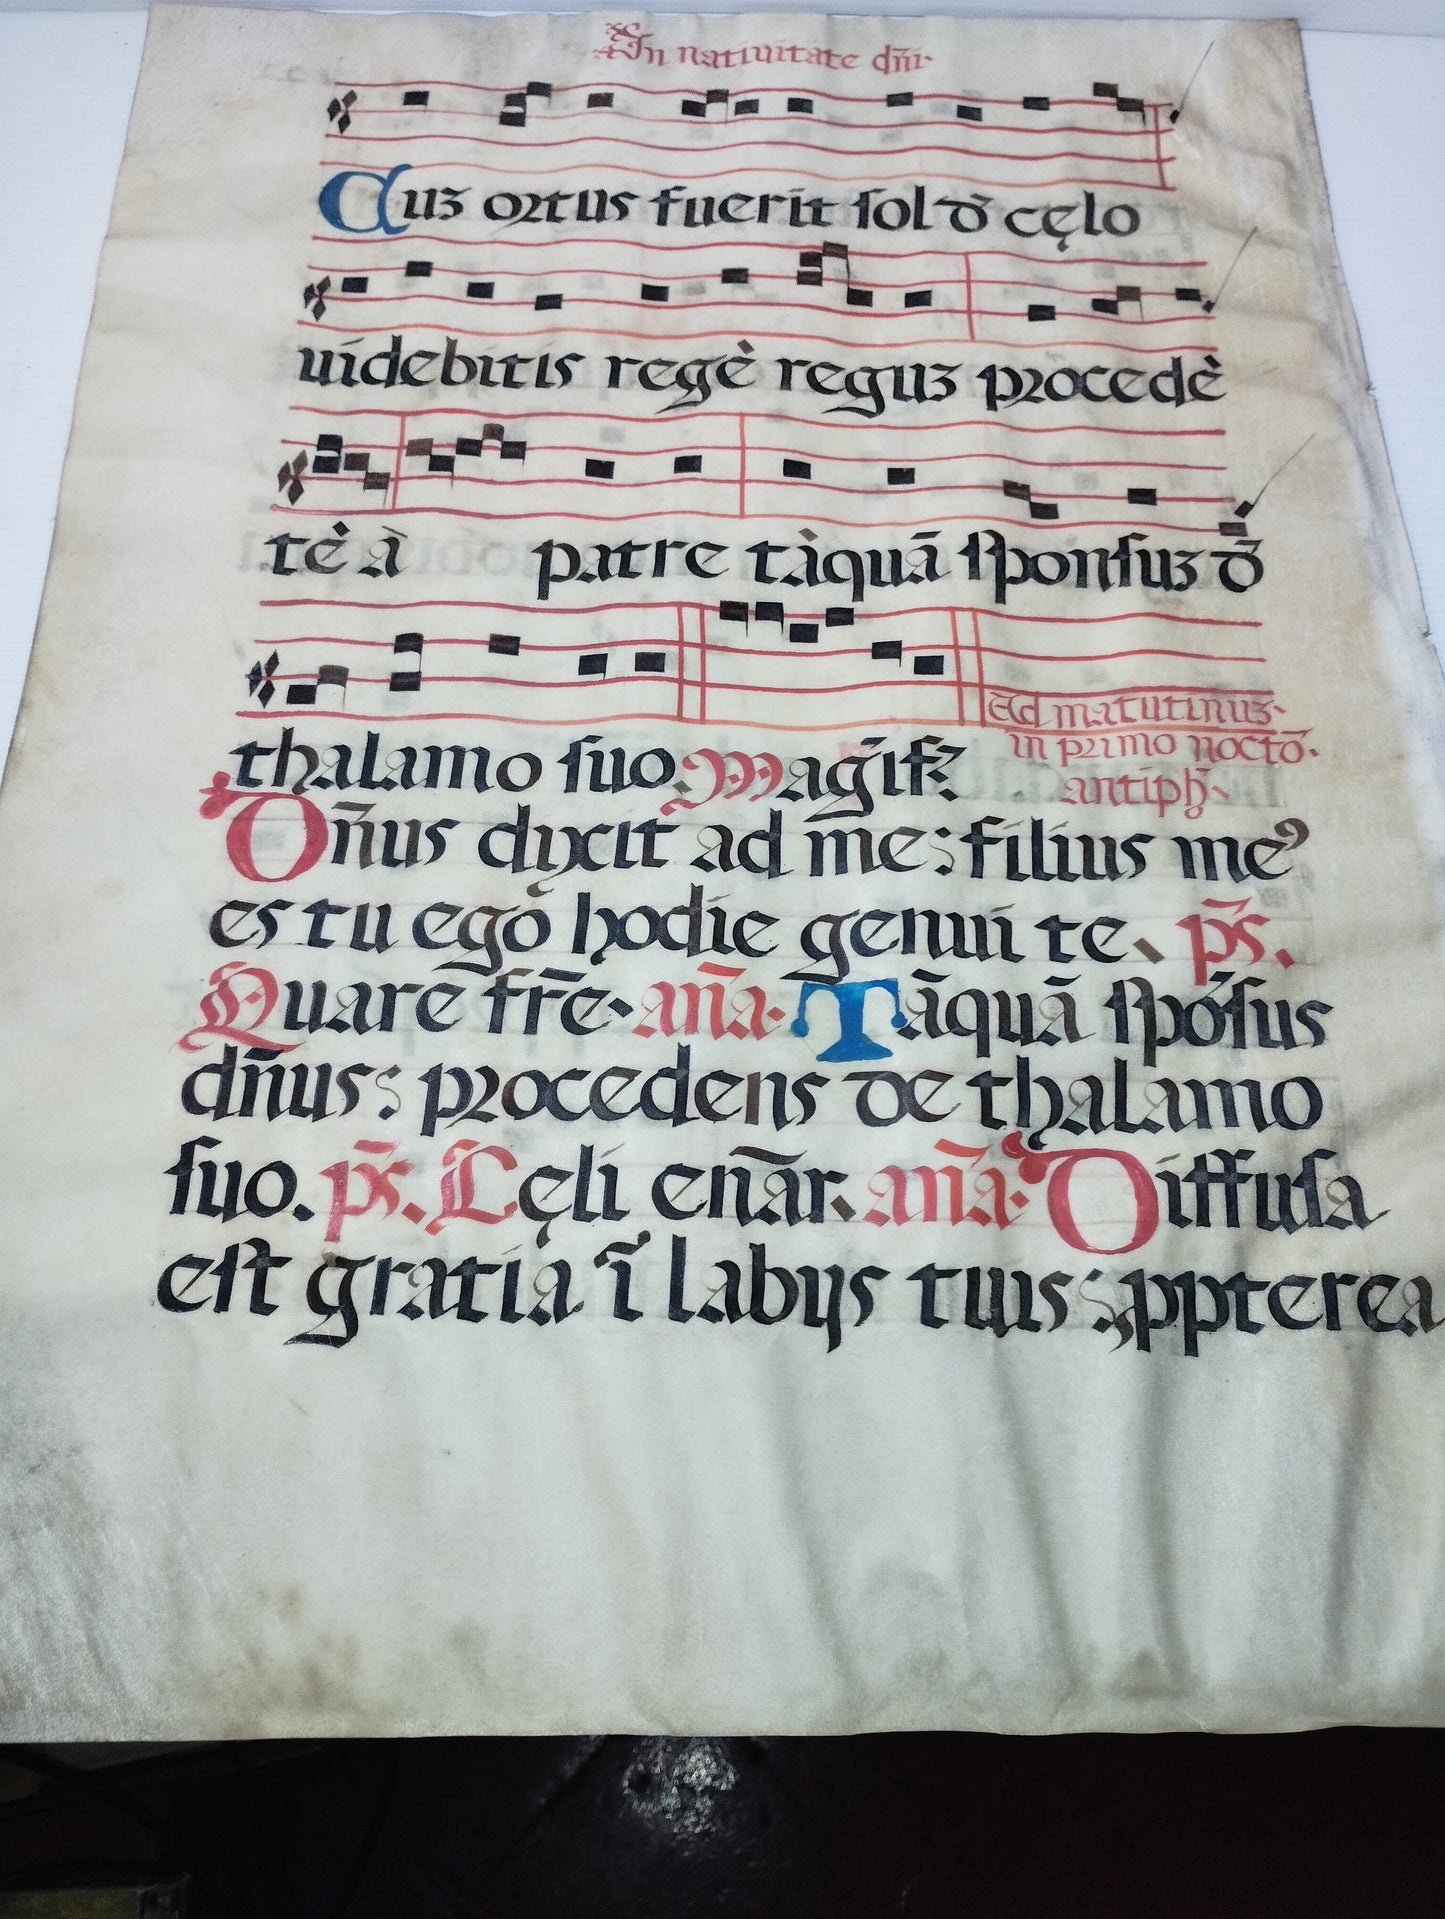 In natiuitate dñi·
Cuꝫ oꝛtus fuerit ſol ð cęlo
uidebitis regē reguꝫ pꝛocedē
tē à patre tāquā ſponſuꝫ ð
thalamo ſuo. Magĩf
Ad matutinuꝫ·
in pꝛimo noctõ·
antiph̃
Dñus dixit ad me: filius meꝰ
es tu ego hodie genui te. ps̃.
Quare fr̃e· aña· Tāquā ſpõſus
dñus: pꝛocedens de thalamo
ſuo. ps̃. Cęli enãr. aña· Diffuſa
eſt gratia ĩ labijs tuis: ꝓpterea